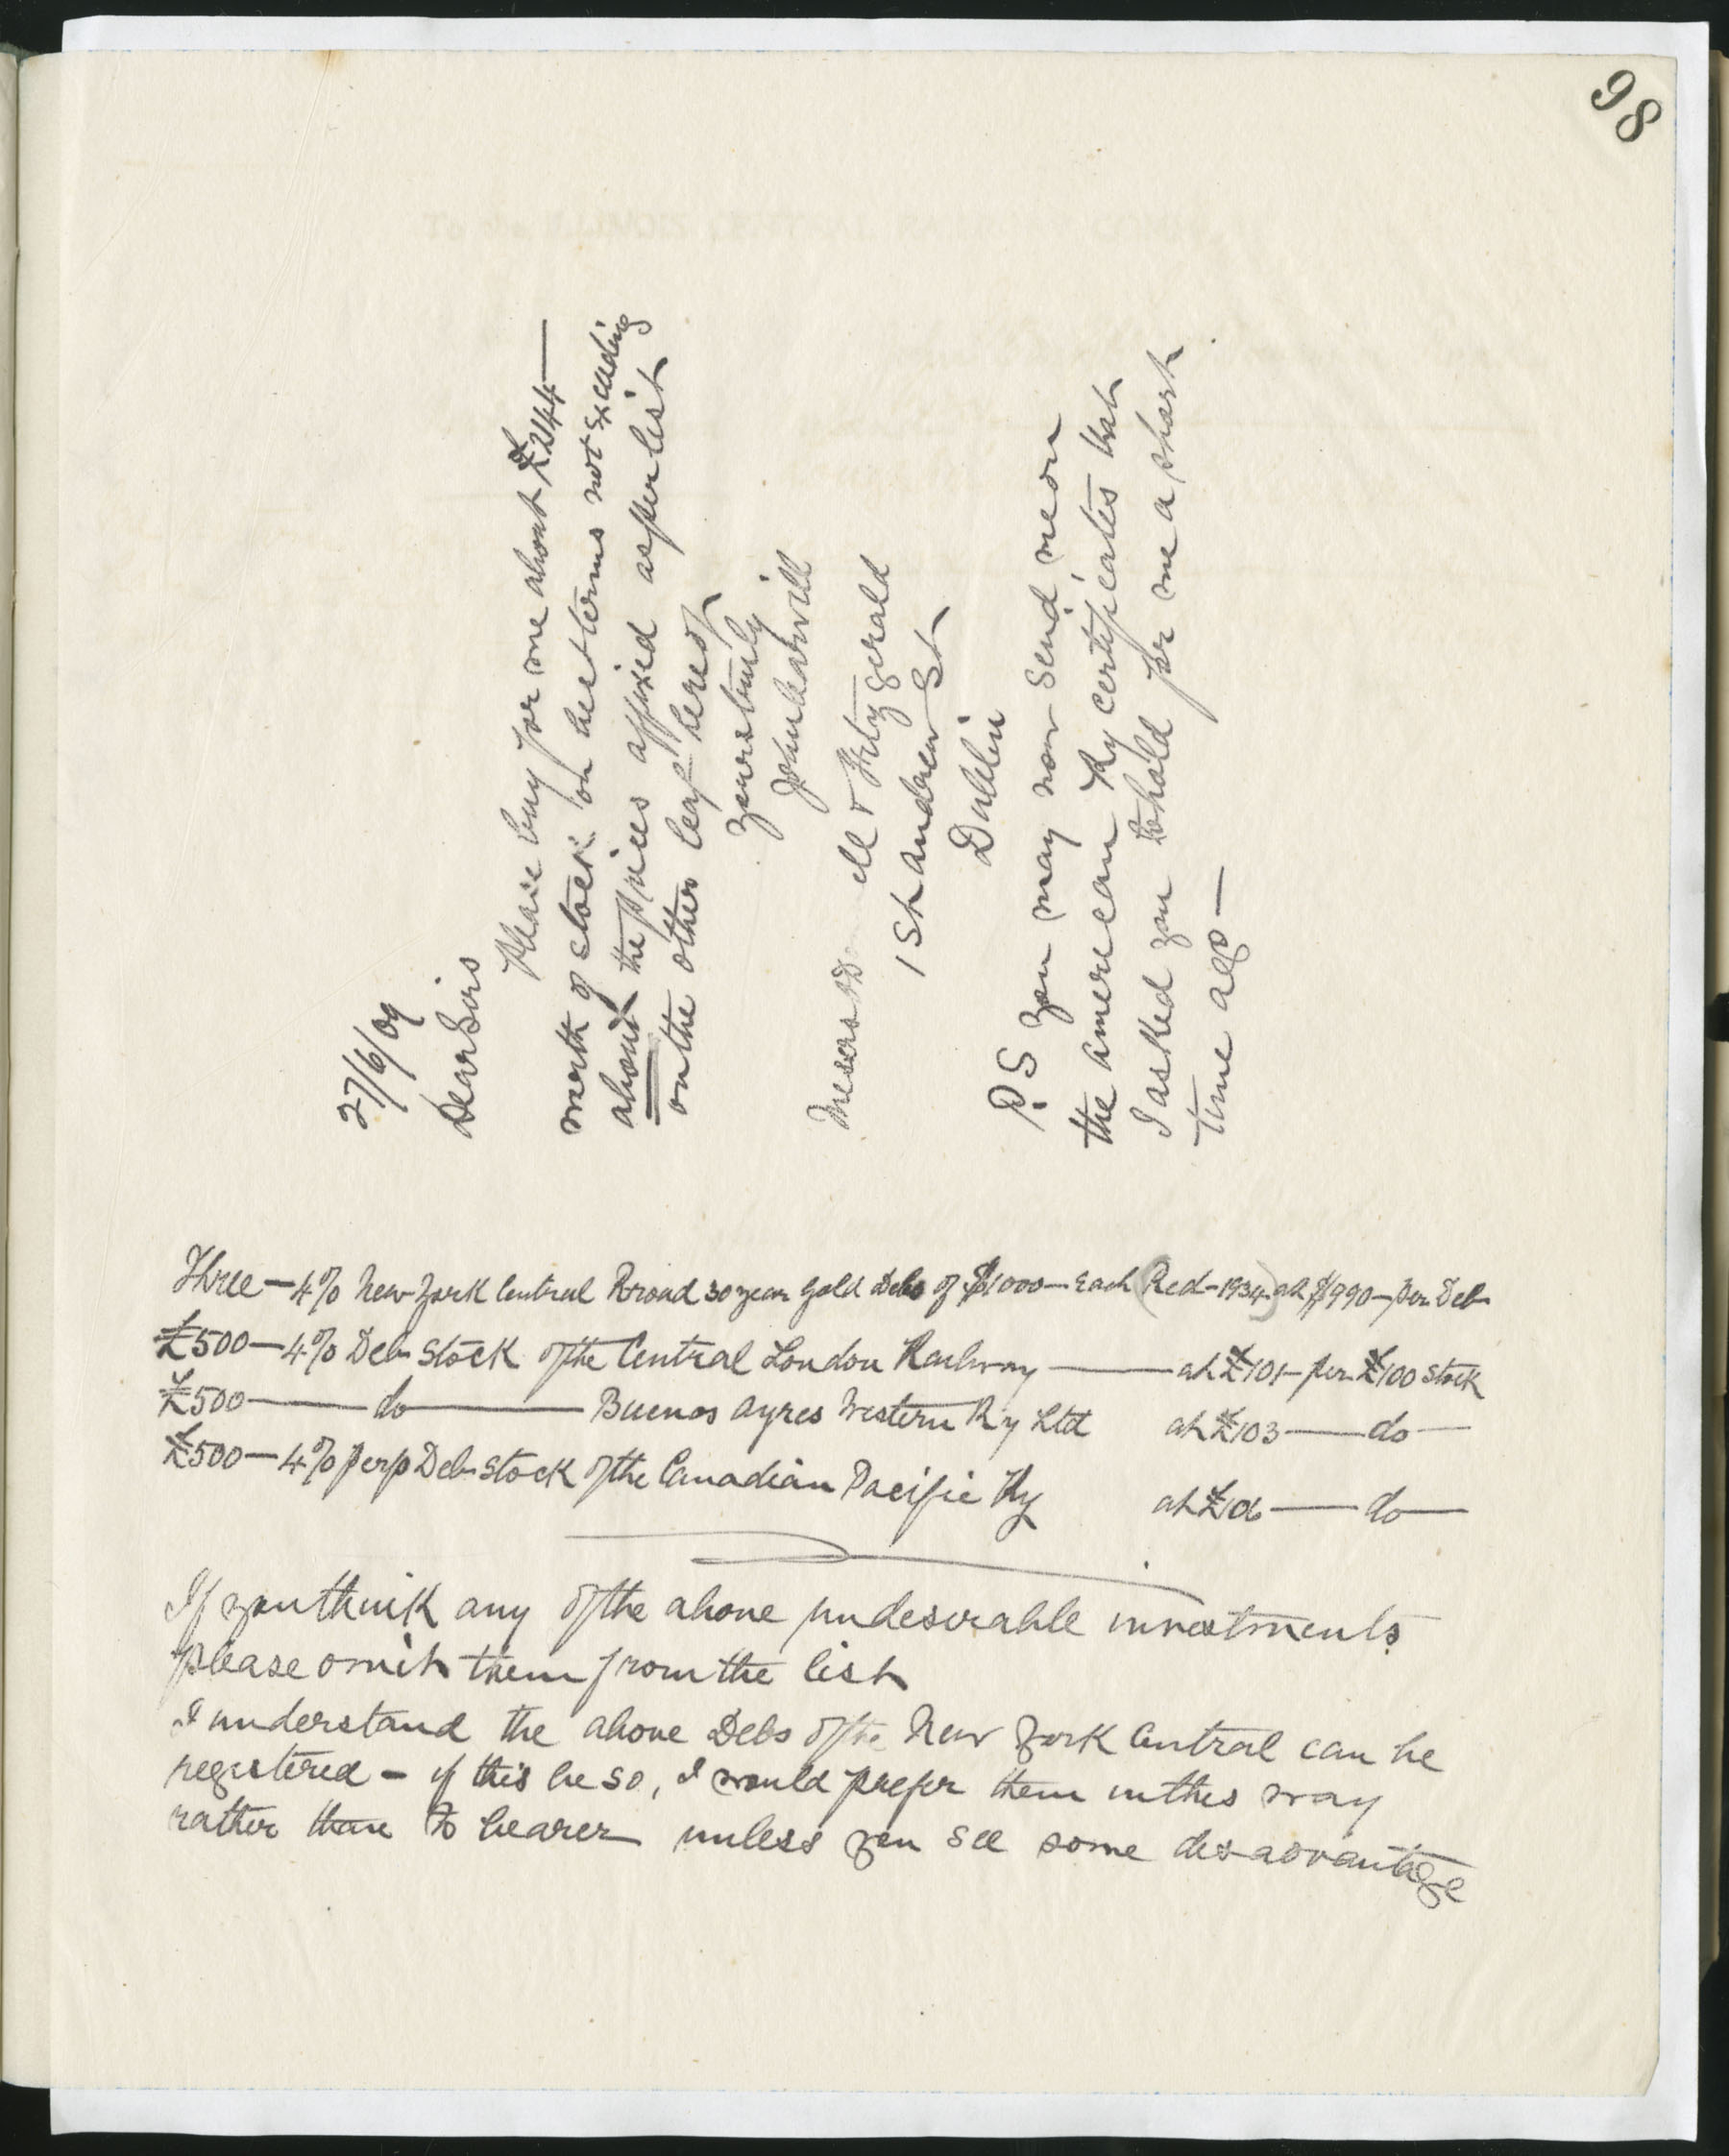 98
27/6/09
Dear Sirs
Please buy for me about £2144—
worth of stock on best terms not exceeding
about the prices affixed as per list
on the other leaf hereof
Yours truly
John
Messrs & Fitzgerald
1 St Andrew St
Dublin
P.S you may now send me on
the american Ry certificates that
I asked you to hold for me a short
time ago —
Three — 4% New York Central Rroad 30 year Gold Debs of $1000 — Each (Red — 1934) at $990 — per Deb
£500 — 4% Deb Stock of the Central London Railway —— at £101 — per £100 stock
£500 —— do —— Buenos Ayres Western Ry Ltd at £103 —— do —
£500 — 4% perp Deb Stock of the Canadian Pacific Ry at £106 —— do —
If you think any of the above undesirable investments
please omit them from the list
I understand the above Debs of the New York Central can be
registered — if this be so, I would prefer them in this way
rather than to bearer unless you see some disadvantage